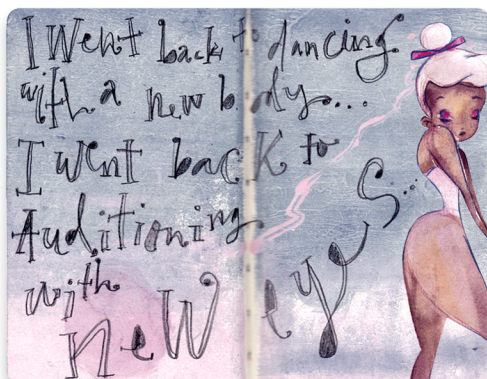 I Went back to dancing
with a new body...
I went back to
Auditioning
with
new eyes...